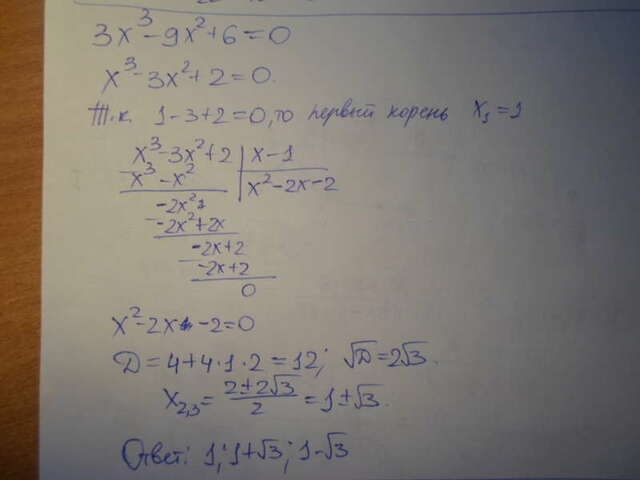 3x³-9x²+6=0
x³-3x²+2=0.
Т.к. 1-3+2=0, то первый корень x₁=1
x³-3x²+2 | x-1
x³-x² | x²-2x-2
-2x²
-2x²+2x
-2x+2
-2x+2
0
x²-2x-2=0
D=4+4·1·2=12; √D=2√3.
x₂,₃= (2±2√3)/2 =1±√3.
Ответ: 1; 1+√3; 1-√3